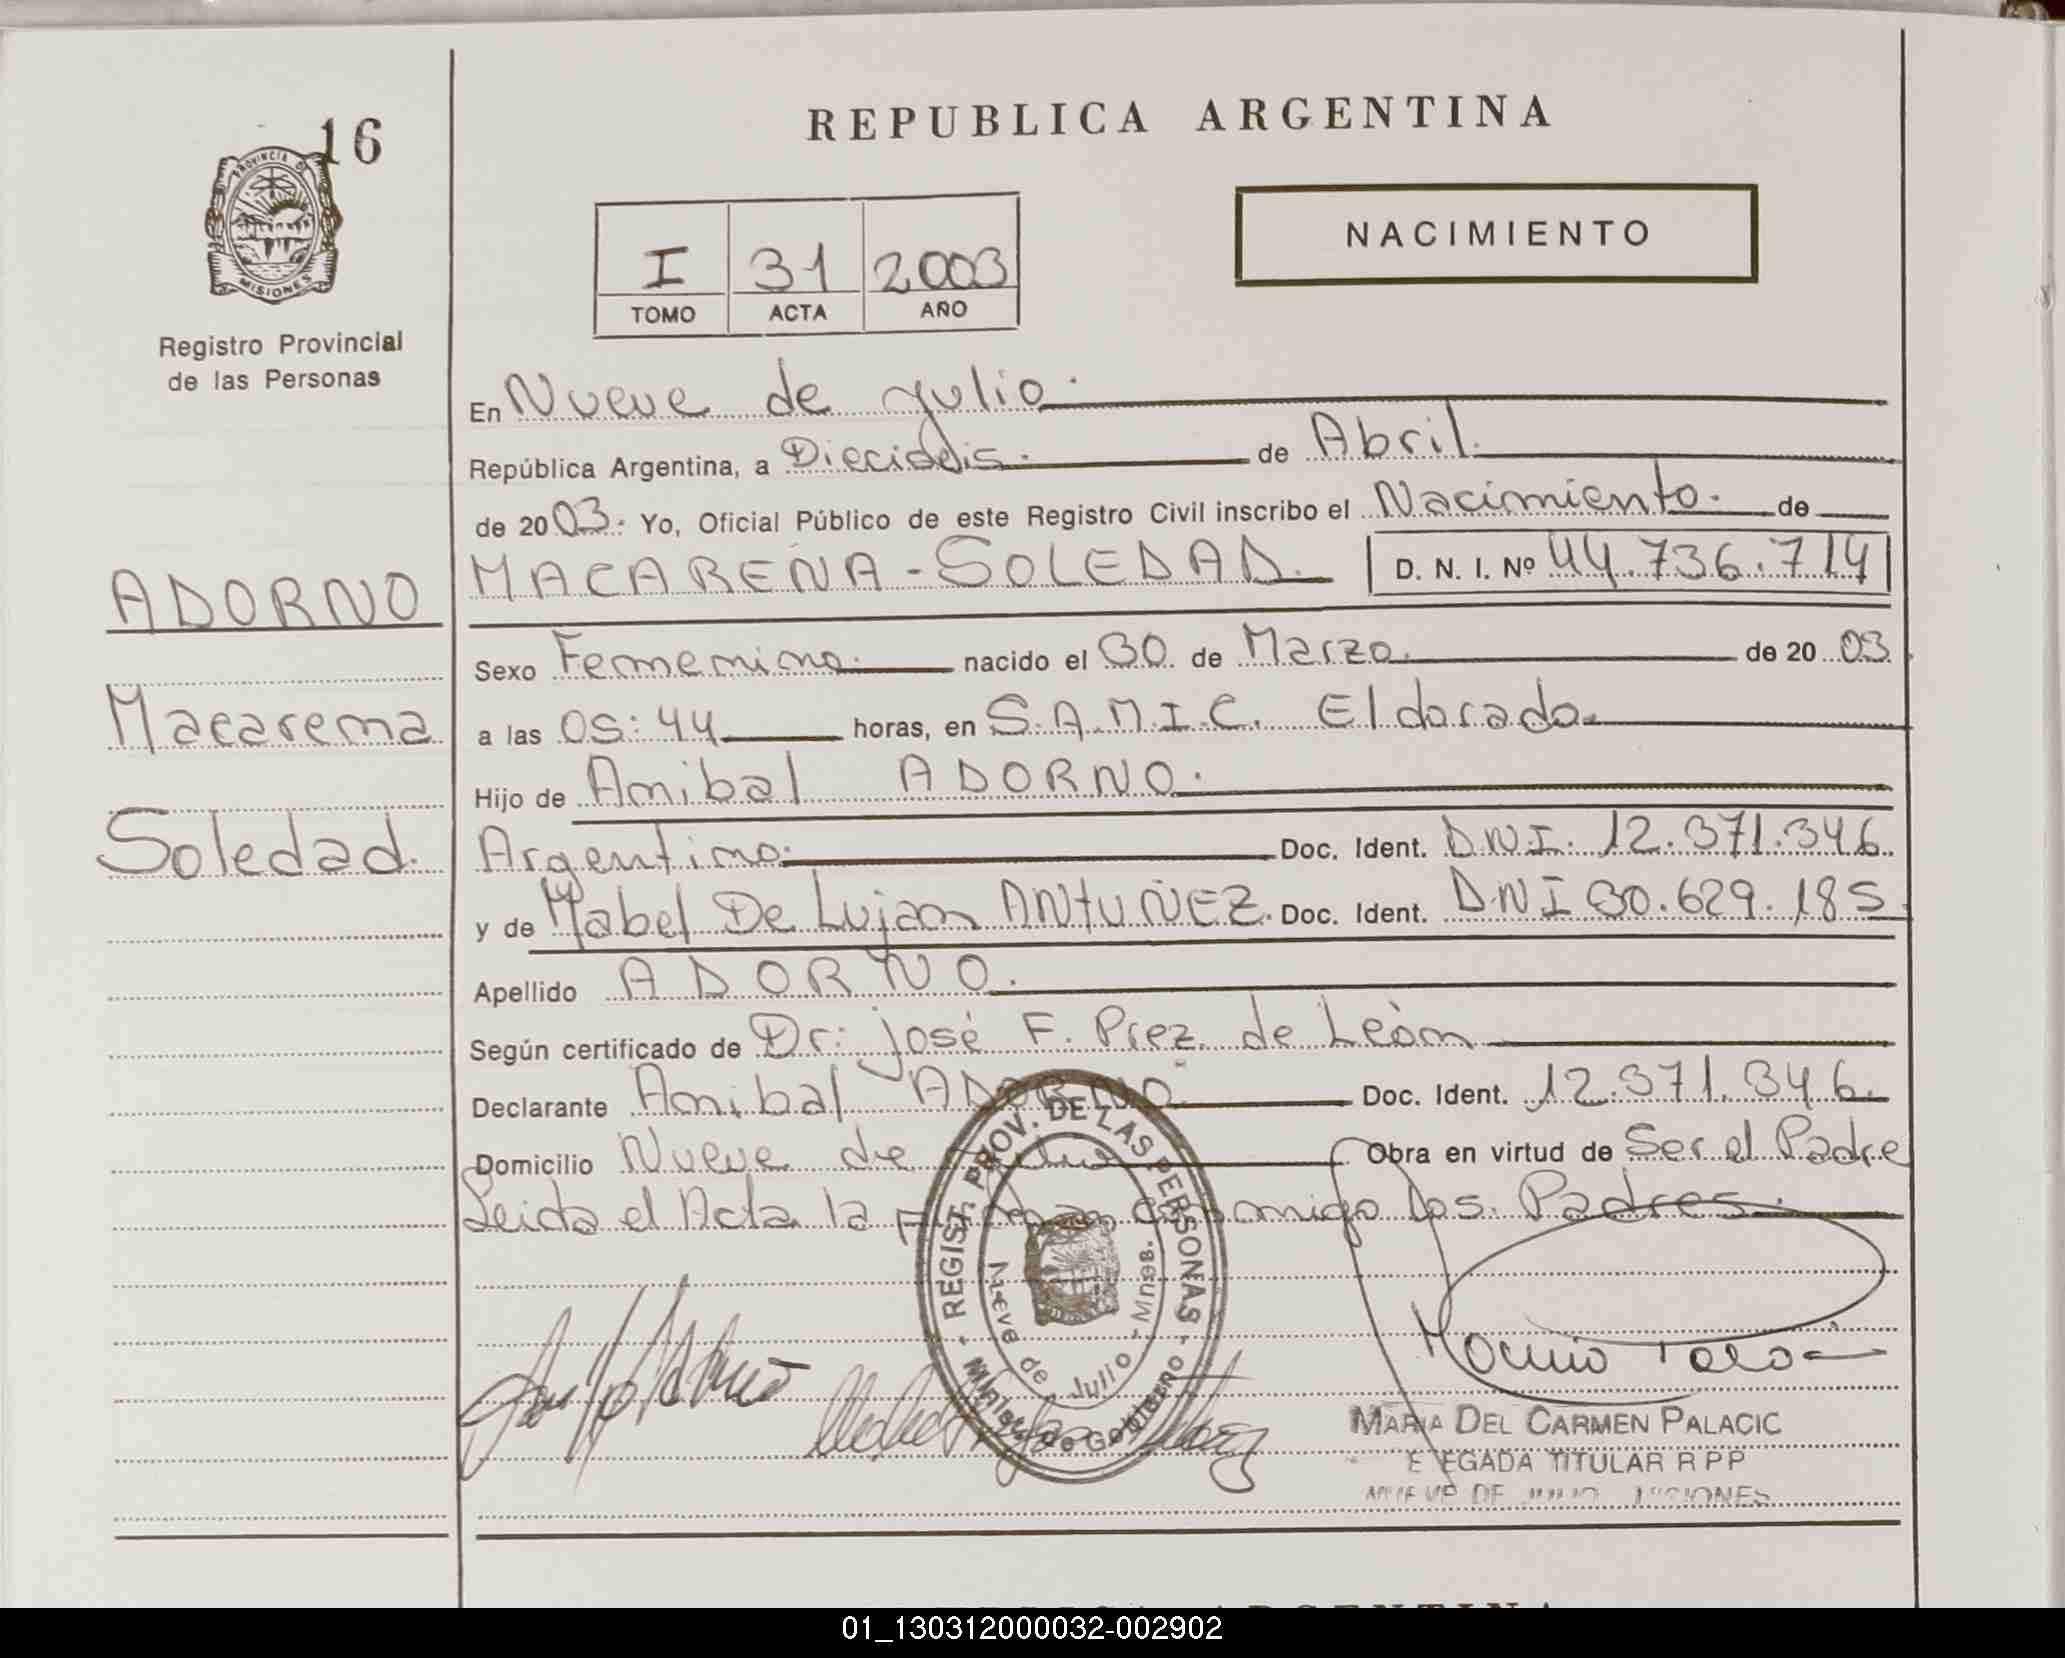 16
PROVINCIA DE
MISIONES
Registro Provincial
de las Personas
ADORNO
Macarena
Soledad.
REPUBLICA ARGENTINA
I 31 2003
TOMO ACTA AÑO
NACIMIENTO
En Nueve de Julio.
República Argentina, a Dieciseis. de Abril.
de 2003. Yo, Oficial Público de este Registro Civil inscribo el Nacimiento. de
MACARENA - SOLEDAD. D. N. I. Nº 44.736.714
Sexo Femenino. nacido el 30 de Marzo. de 2003
a las 05:44 horas, en S.A.M.I.C. Eldorado.
Hijo de Anibal ADORNO.
Argentino. Doc. Ident. DNI. 12.371.346.
y de Mabel De Lujan ANTUÑEZ. Doc. Ident. DNI 30.629.185.
Apellido ADORNO.
Según certificado de Dr: José F. Prez de León
Declarante Anibal ADORNO. Doc. Ident. 12.371.346.
Domicilio Nueve de Julio Obra en virtud de Ser el Padre
Leida el Acta la Firman conmigo los Padres.
REGIST. PROV. DE LAS PERSONAS
Nueve de Julio - Mnes.
Minist. de Gobierno
MARIA DEL CARMEN PALACIC
E EGADA TITULAR R P P
DE JULIO MISIONES
01_130312000032-002902